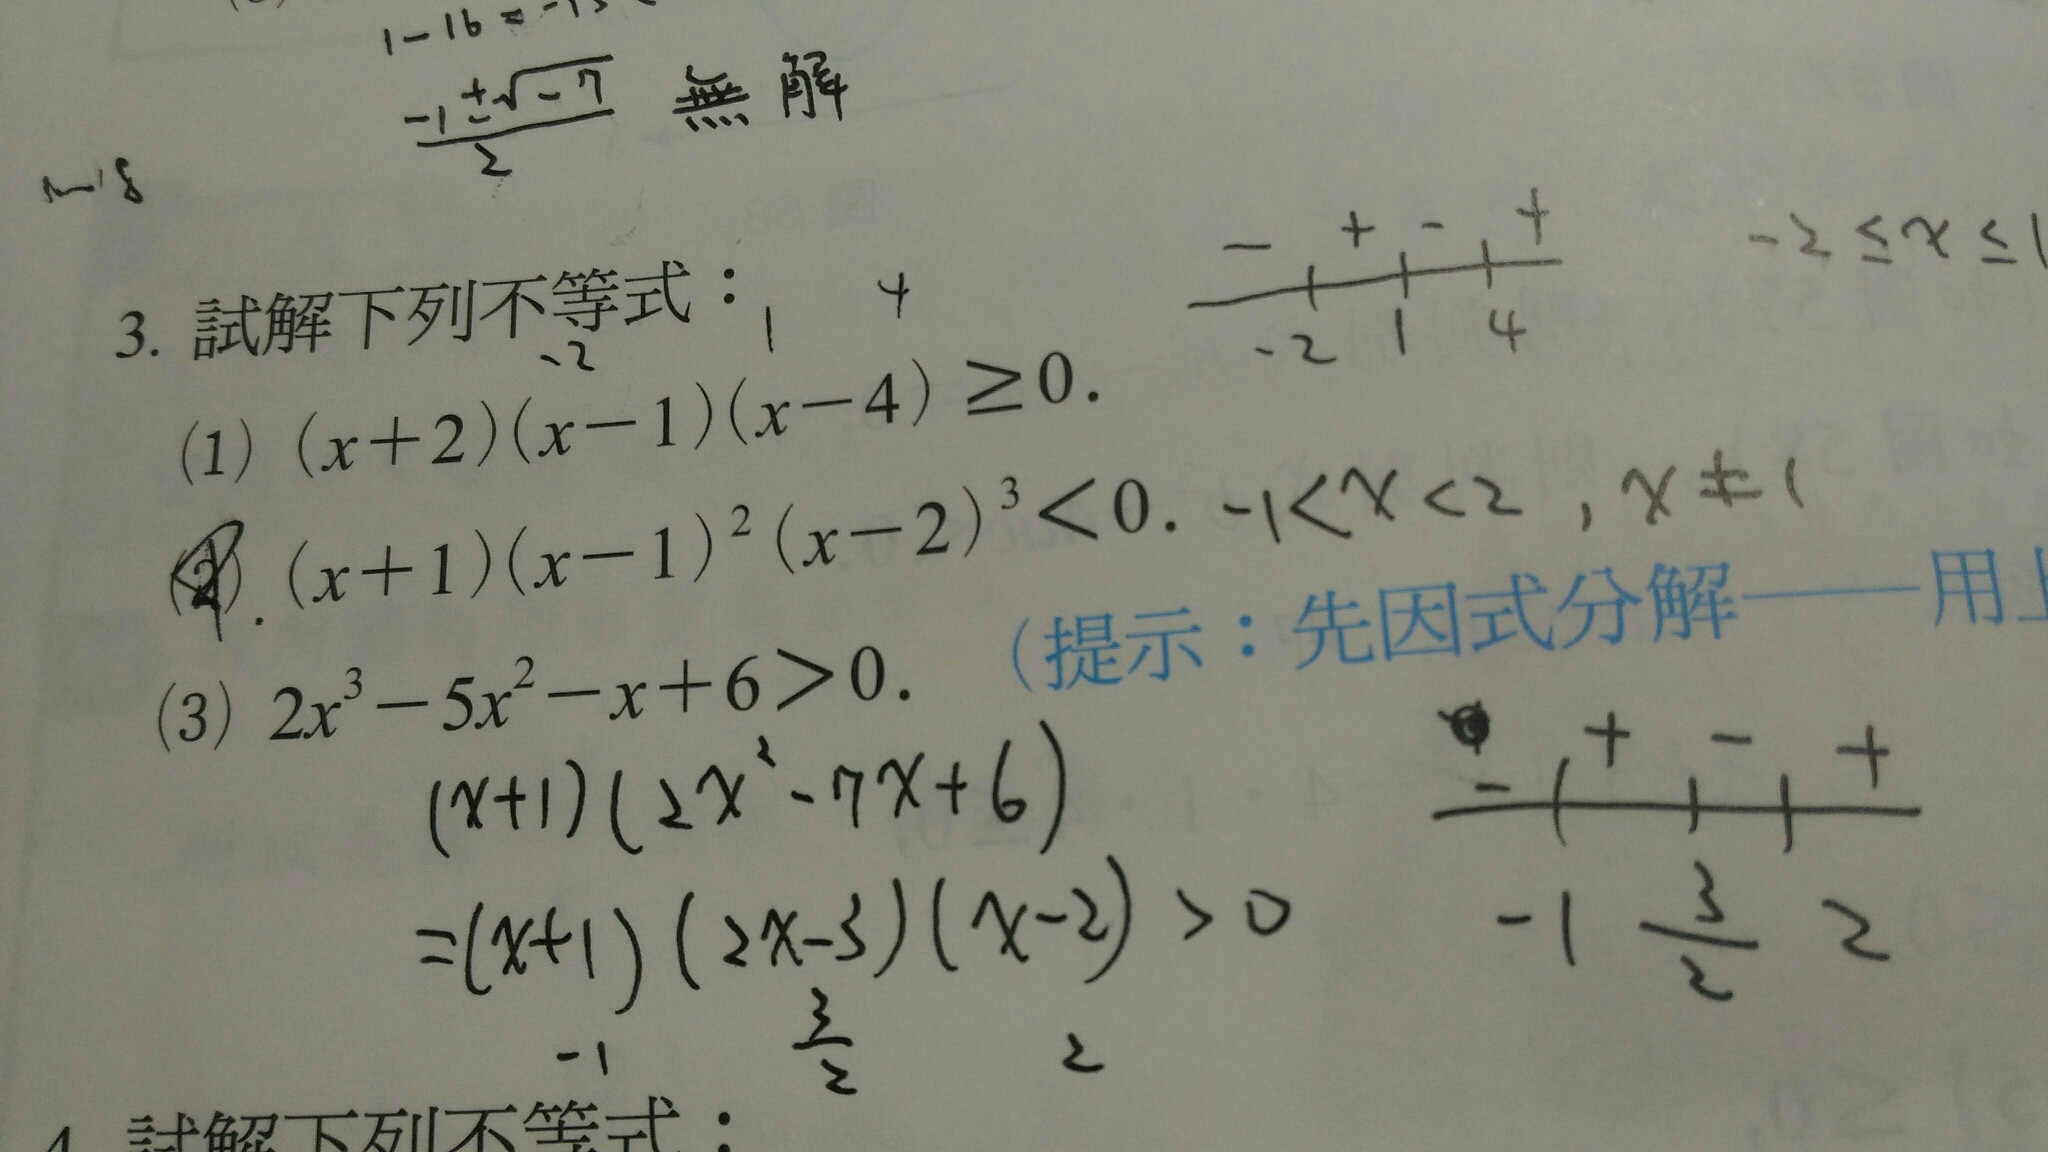 1-16=-15
-1±√-7 無解
2
3. 試解下列不等式:
-2 1 4
- + - +
-2 1 4
-2≤x≤1
(1) (x+2)(x-1)(x-4)≥0.
(2). (x+1)(x-1)²(x-2)³<0. -1<x<2, x≠1
(3) 2x³-5x²-x+6>0. (提示:先因式分解——用
(x+1)(2x²-7x+6)
=(x+1)(2x-3)(x-2)>0
-1 3/2 2
- + - +
-1 3/2 2
4. 試解下列不等式: